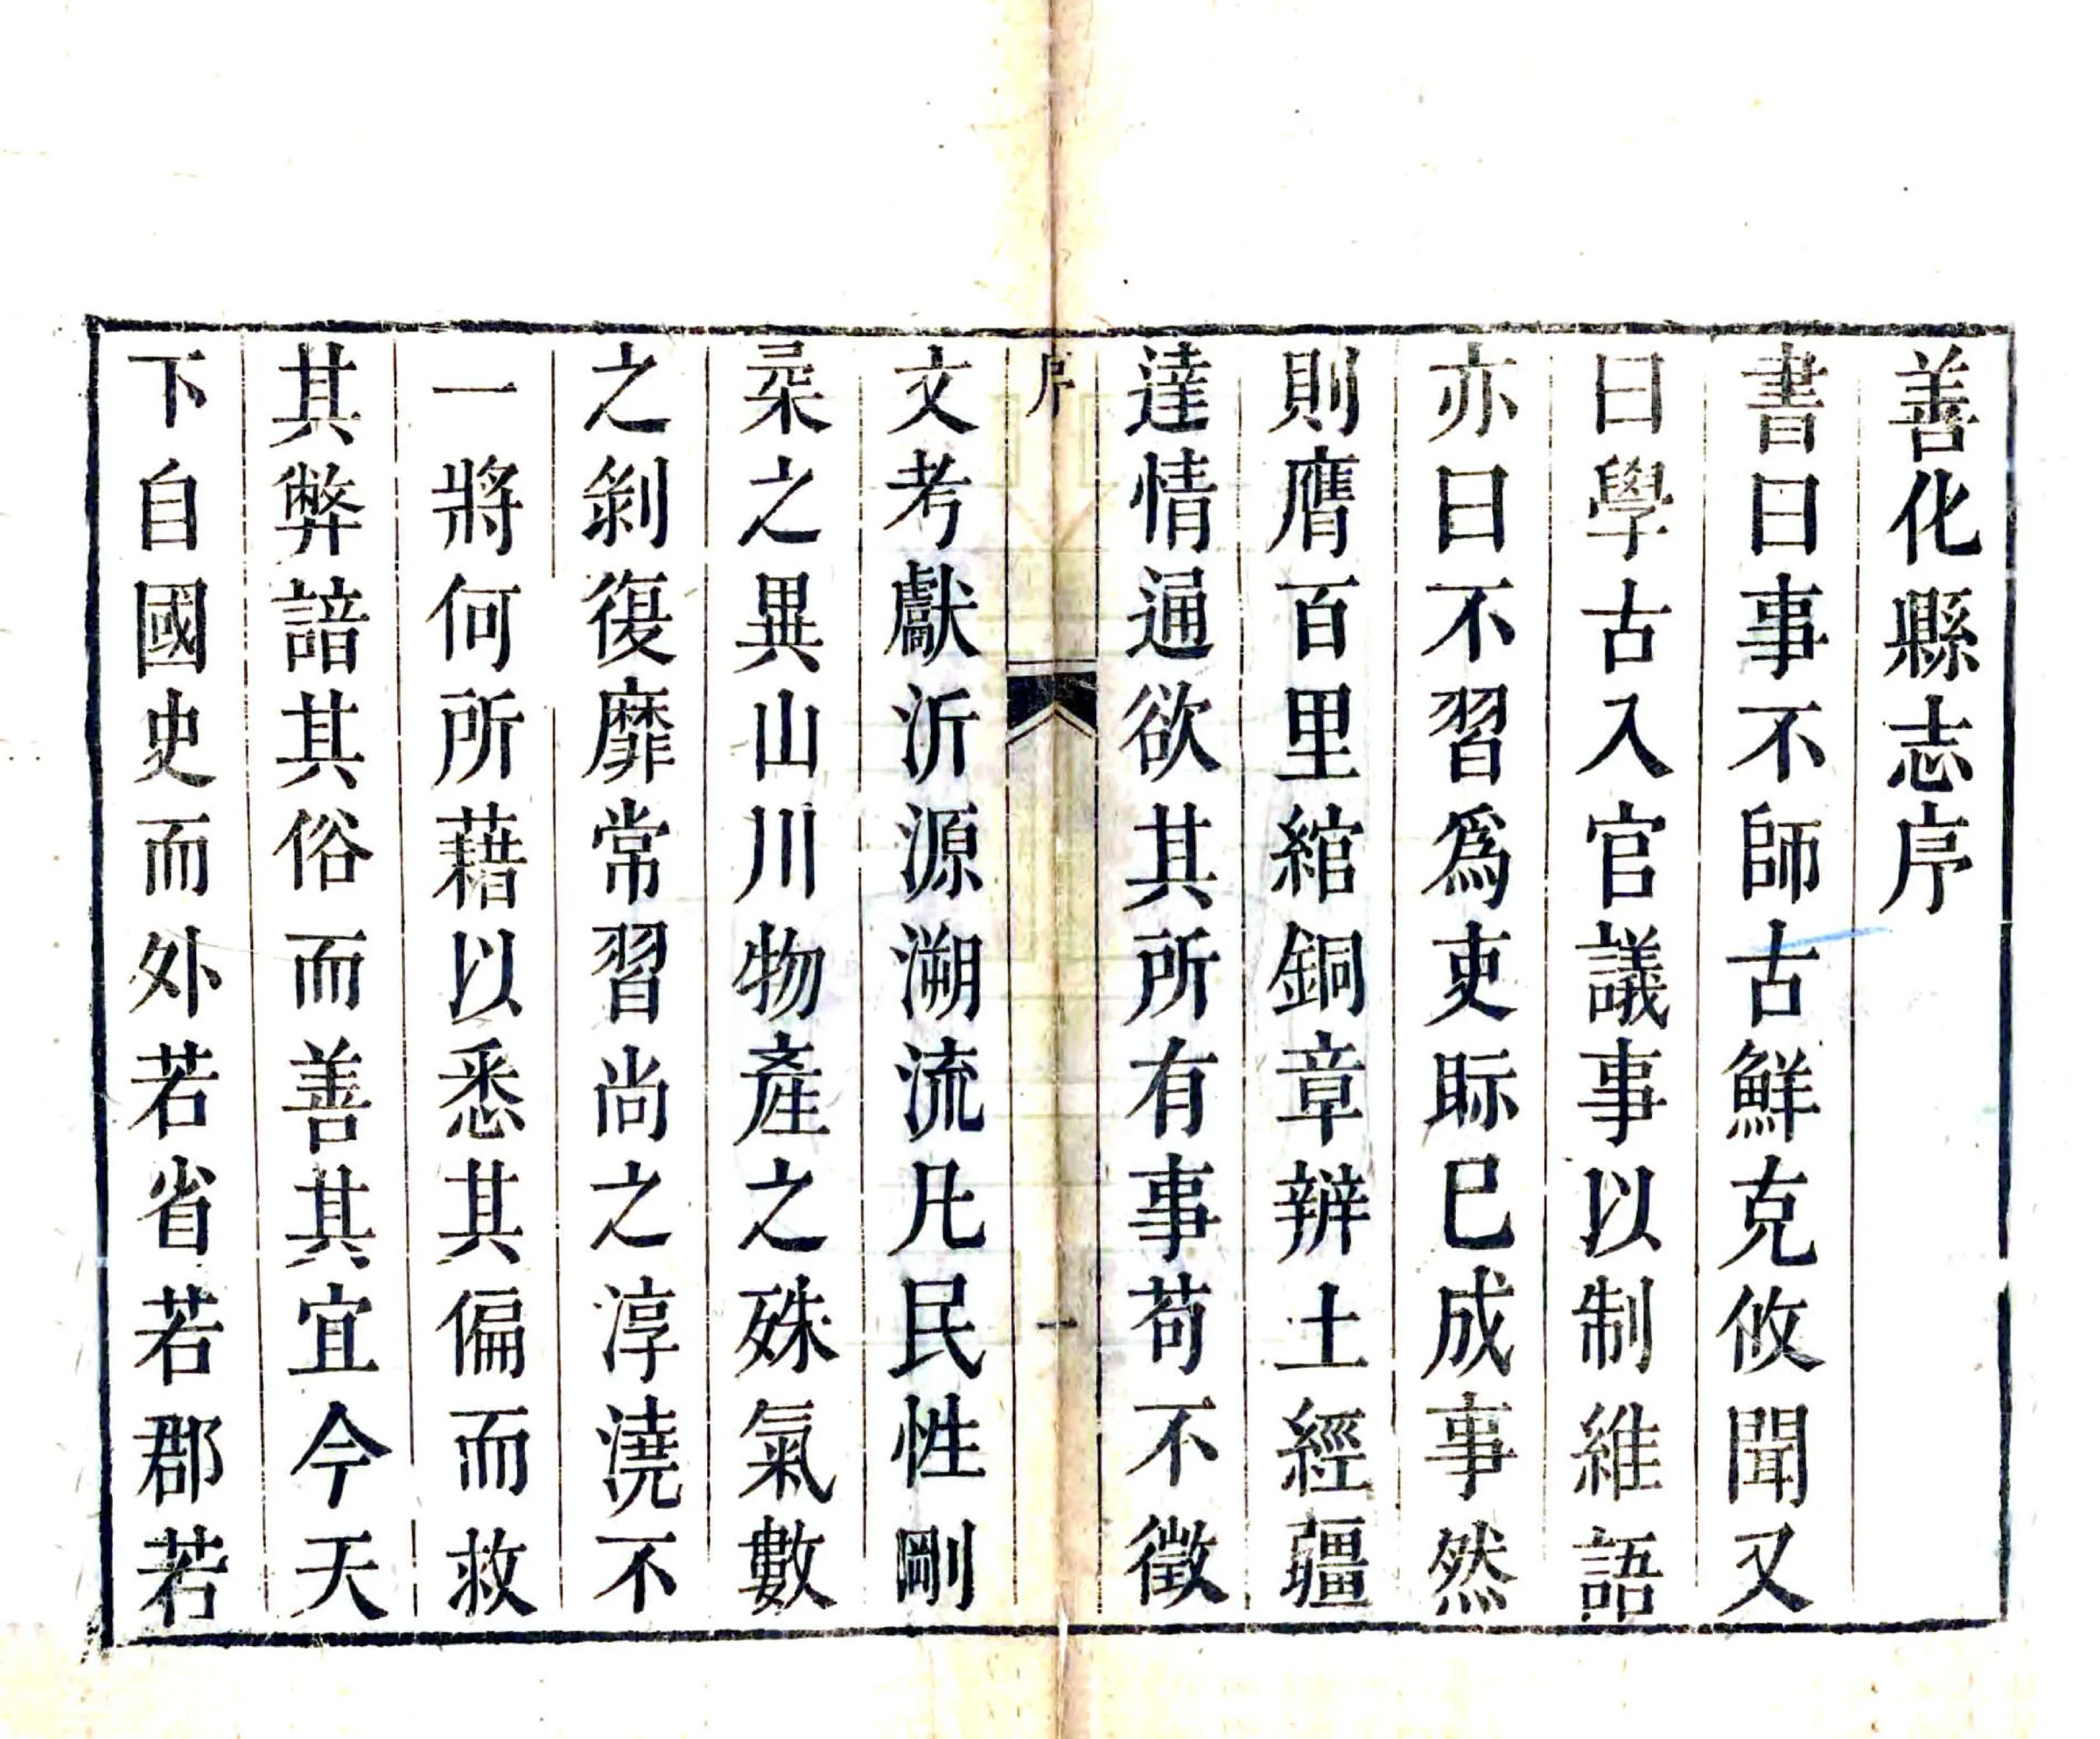 善化縣志序
書曰事不師古鮮克攸聞又
曰學古入官議事以制維語
亦曰不習爲吏眎已成事然
則膺百里綰銅章辨土經疆
達情通欲其所有事苟不徵
序
一
文考獻沂源溯流凡民性剛
柔之異山川物產之殊氣數
之剝復靡常習尚之淳澆不
一將何所藉以悉其偏而救
其弊諳其俗而善其宜今天
下自國史而外若省若郡若